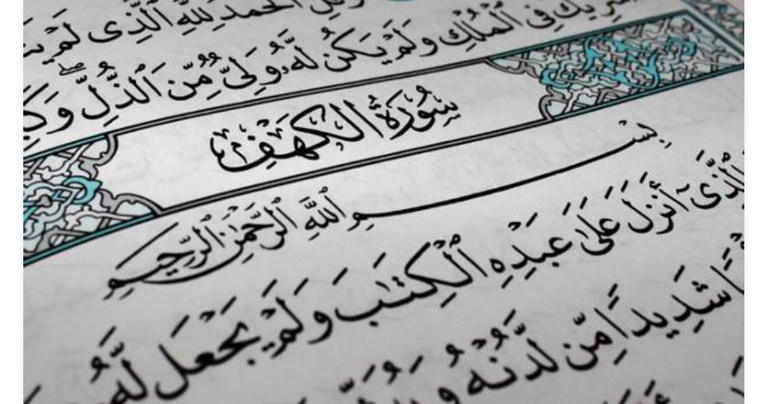 ٱلْحَمْدُ لِلَّهِ ٱلَّذِى لَمْ
شَرِيكٌ فِى ٱلْمُلْكِ وَلَمْ يَكُن لَّهُۥ وَلِىٌّ مِّنَ ٱلذُّلِّ
سُورَةُ الكَهْفِ
بِسْمِ ٱللَّهِ ٱلرَّحْمَٰنِ ٱلرَّحِيمِ
ٱلَّذِىٓ أَنزَلَ عَلَىٰ عَبْدِهِ ٱلْكِتَٰبَ وَلَمْ يَجْعَل لَّهُۥ
شَدِيدًا مِّن لَّدُنْهُ